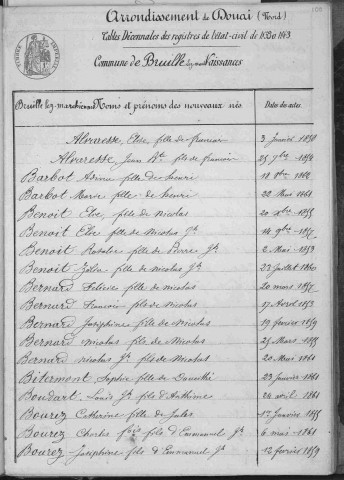 Arrondissement de Douai (Nord)
Tables Décennales des registres de l'état-civil de 1853 à 1863
Commune de Bruille lez Naissances
Bruille lez marchiennes Noms et prénoms des nouveaux nés Dates des actes
Alvaresse, Elise fille de francois 3 Janvier 1858
Alvaresse, Jean Bte fils de francois 25 7bre
Barbot Adina fille de henri 18 1860
Barbot Marie fille de henri 22 Mai 1861
Benoit Elise fille de Nicolas 20 xbre 1855
Benoit Elise fille de Nicolas 14 9bre 1857
Benoit Rosalie fille de Pierre Jh 2 Mai 1853
Benoit Zélie fille de Nicolas Jh 23 Juillet 1860
Bernard Félicie fille de Nicolas 20 mars 1857
Bernard Francois fils de Nicolas 17 Avril 1853
Bernard Joséphine fille de Nicolas 19 février 1859
Bernard Nicolas fils de Nicolas 25 Mars 1855
Bernard Nicolas Jh fils de Nicolas 20 Mai 1861
Biterment Sophie fille de 23 Janvier 1861
Boudart Louis Jh fils d'Anthime 24 avril 1861
Bourez Catherine fille de Jules 1er Janvier 1855
Bourez Charles fois fils d'Emmanuel Jh 6 mai 1861
Bourez Joséphine fille d'Emmanuel Jh 12 février 1859